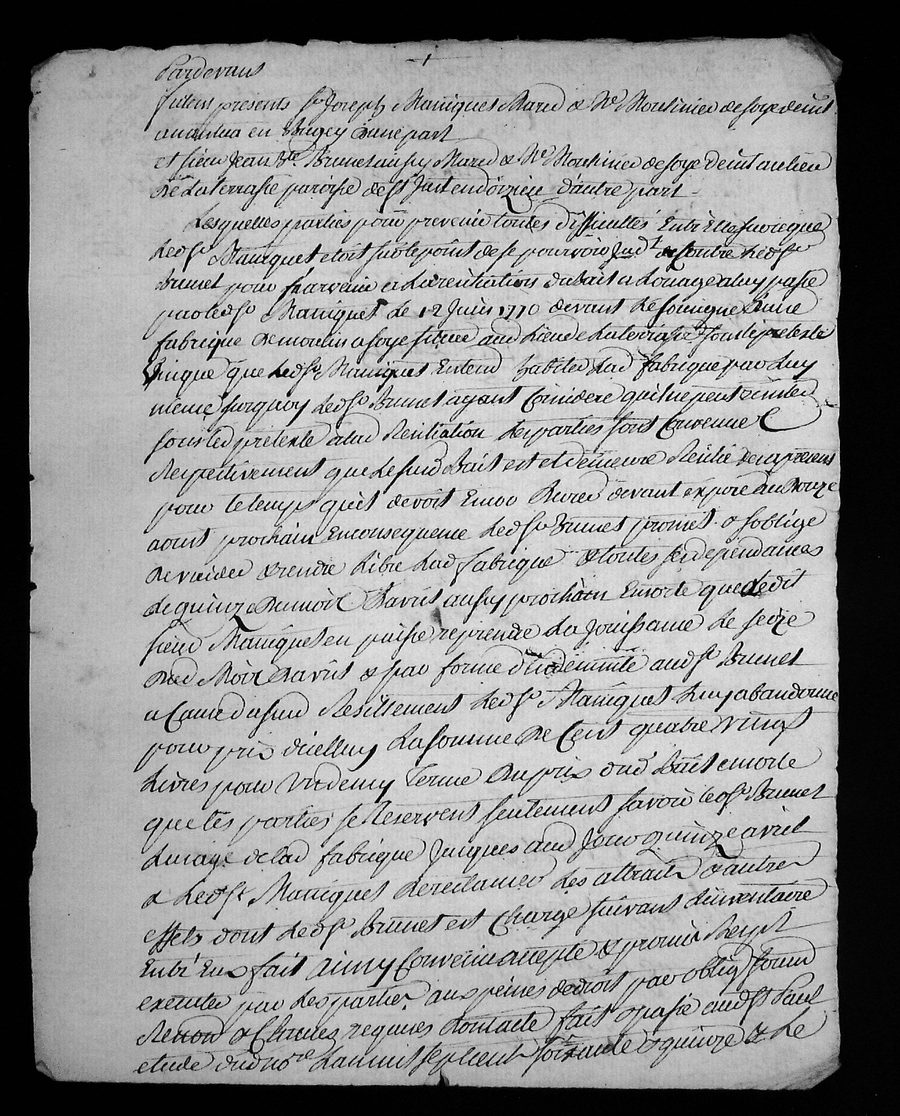 Pardevant
furent presents Sr Joseph Maniquet Mard & Me Moulinier de soye demt
a nantua en Bugey d'une part
et sieur Jean Bte Brunet aussy Mard & Me Moulinier de soye demt au lieu
de La terrasse paroisse de St Just en d'oizieu d'autre part
Lesquelles parties pour prevenir toutes difficultés Entr'Elles sur ce que
Ledsr Maniquet etoit sur le point de se pourvoir Judt Contre Ledsr
Brunet pour parvenir a La resiliation du Bail a Louage a luy passé
par ledsr Maniquet le 12 Juin 1770 devant Le soussigné d'une
fabrique de moulin a soye située aud Lieu de La terrasse & sous le pretexte
que Ledsr Maniquet Entend habiter Lad fabrique par Luy
même surquoy Ledsr Brunet ayant Consideré qu'il ne peut
sous led pretexte a lad Resiliation Les parties sont Convenues
Respectivement que Le susd Bail est et demeure Resilié des a present
pour le temps qu'il devoit Encor durer devant expirer au douze
aoust prochain En consequence Ledsr Brunet promet & s'oblige
de vuider & rendre Libre Lad fabrique & toutes ses dependances
Le quinze du mois D'avril aussy prochain Ensorte que Ledit
sieur Maniquet en puisse reprendre La Jouissance Le seize
dud Mois D'avril & par forme d'indemnité audsr Brunet
a Cause du susd Resillement Ledsr Maniquet Luy abandonne
pour prix d'icelluy La somme de Cent quatre vingt
Livres pour un demy Terme du prix dud Bail ensorte
que les parties se Reservent seulement savoir ledsr Brunet
L'usage de lad fabrique Jusques aud Jour quinze avril
& Ledsr Maniquet de reclamer Les attraits & autres
effets dont Ledsr Brunet est Chargé suivant L'inventaire
Entr'Eux fait ainsy Convenu accepté & promis Respt
executer par Les parties aux peines de droit par oblig soumd
Renon & Clauses requises dont acte fait & passé audst Paul
etude dud nore L'an mil sept cent soixante & quinze & Le